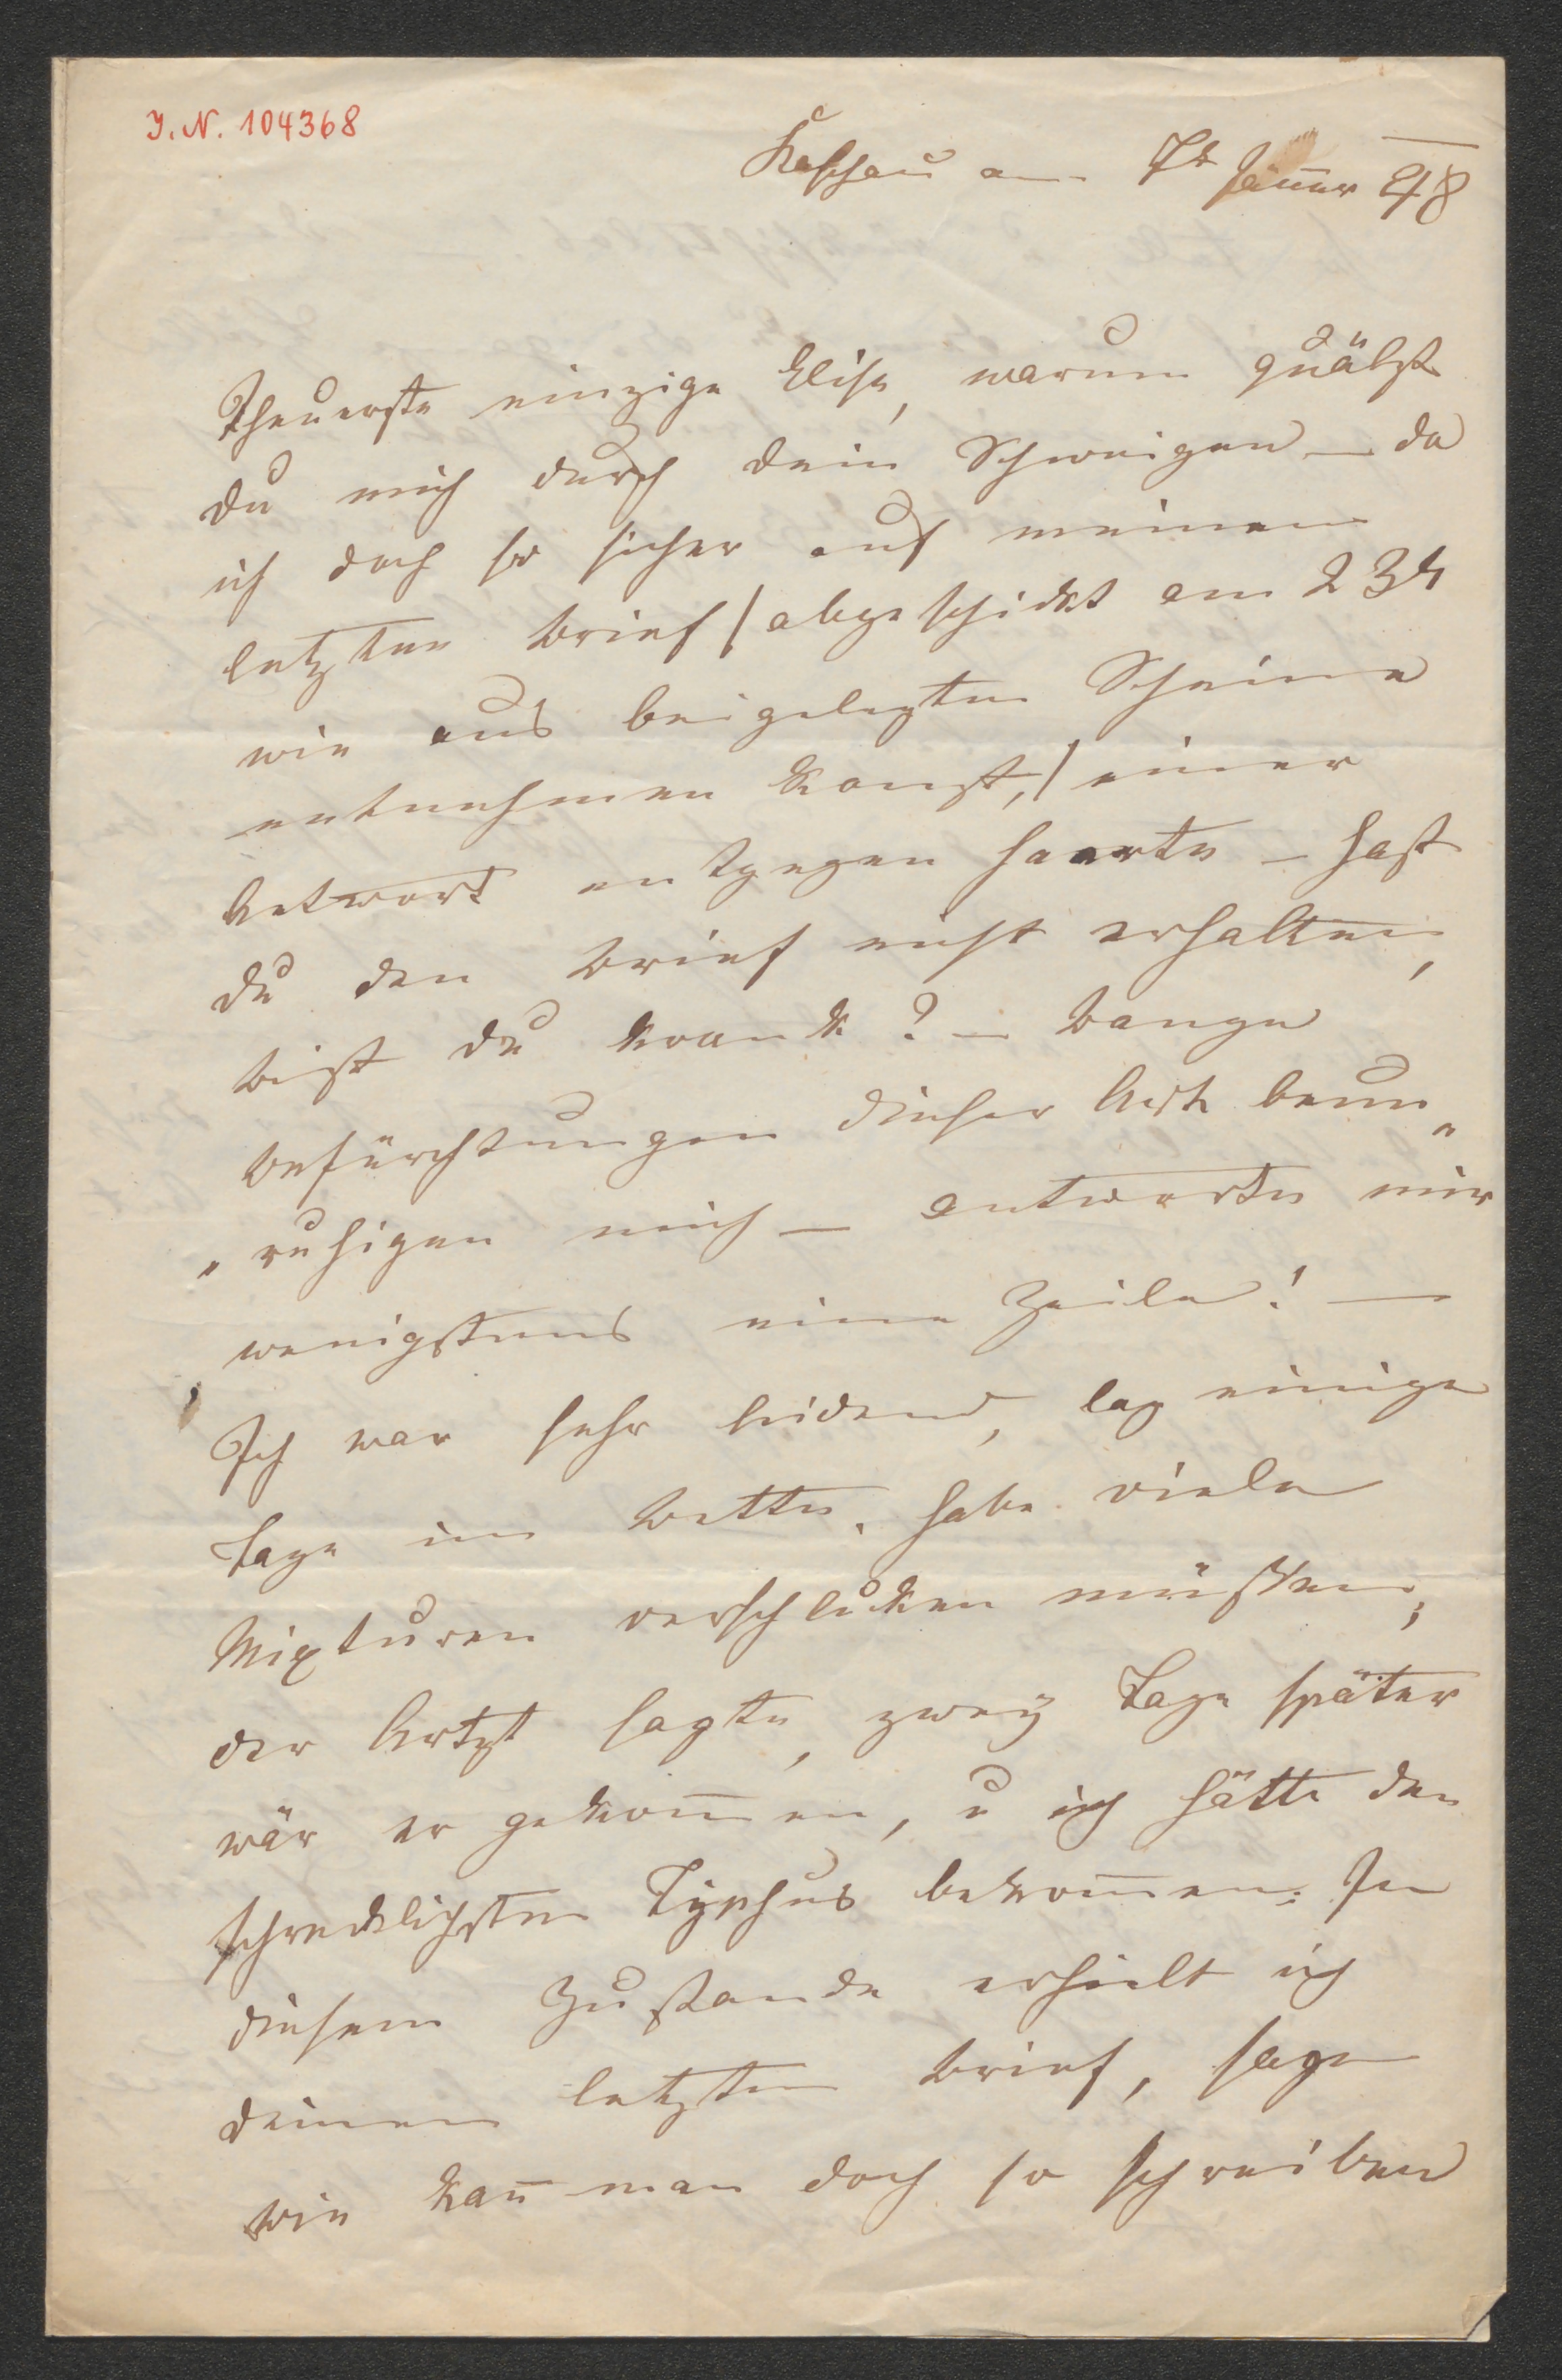 J. N. 104368
Kaschau am 7t Jäner 48
Theuerste einzige Elise, warum quälst
du mich durch dein Schweigen – da
ich doch so sicher auf meinen
letzten Brief / abgeschickt am 23t
wie aus beigelegten Scheine
entnehmen kanst, / einer
Antwort entgegen haarte – hast
du den Brief nicht erhalten,
bist du krank? – bange
Befürchtungen dieser Art beun„
„ruhigen mich – antworte mir
wenigstens eine Zeile! –
Ich war sehr leidend, lag einige
Tage im Bette, habe viele
Mixturen verschlucken müssen;
der Artzt sagte, zwey Tage später
wär er gekom̅en, u ich hätte den
schrecklichsten Typhus bekom̅en. In
diesem Zustande erhielt ich
deinen letzten Brief, sage
wie kan̅ man doch so schreiben